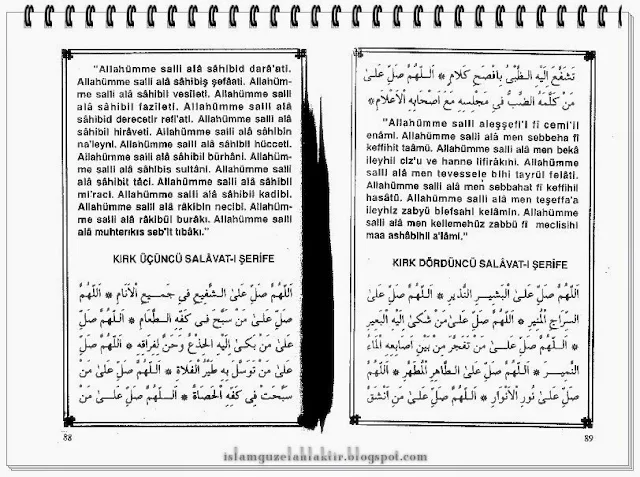 "Allahümme salli alâ sâhibid darâ'ati.
Allahümme salli alâ sâhibiş şefâati. Allahüm-
me salli alâ sâhibil vesîleti. Allahümme salli
alâ sâhibil fazîleti. Allahümme salli alâ
sâhibid derecetir refi'ati. Allahümme salli alâ
sâhibil hirâveti. Allahümme salli alâ sâhibin
na'leyni. Allahümme salli alâ sâhibil hücceti.
Allahümme salli alâ sâhibil bürhâni. Allahüm-
me salli alâ sâhibis sultâni. Allahümme salli
alâ sâhibit tâci. Allahümme salli alâ sâhibil
mi'raci. Allahümme salli alâ sâhibil kadîbi.
Allahümme salli alâ râkibin necîbi. Allahüm-
me salli alâ râkibil burâkı. Allahümme salli
alâ muhterikıs seb'ıt tıbâkı."
KIRK ÜÇÜNCÜ SALÂVAT-I ŞERİFE
اَللّٰهُمَّ صَلِّ عَلَى الشَّفِيعِ فِي جَمِيعِ الْاَنَامِ * اَللّٰهُمَّ
صَلِّ عَلٰى مَنْ سَبَّحَ فِي كَفِّهِ الطَّعَامُ * اَللّٰهُمَّ صَلِّ
عَلٰى مَنْ بَكٰى اِلَيْهِ الْجِذْعُ وَحَنَّ لِفِرَاقِهِ * اَللّٰهُمَّ صَلِّ
عَلٰى مَنْ تَوَسَّلَ بِهِ طَيْرُ الْفَلَاةِ * اَللّٰهُمَّ صَلِّ عَلٰى مَنْ
سَبَّحَتْ فِي كَفِّهِ الْحَصَاةُ * اَللّٰهُمَّ صَلِّ عَلٰى مَنْ
88
تَشَفَّعَ اِلَيْهِ الظَّبْيُ بِاَفْصَحِ كَلَامٍ * اَللّٰهُمَّ صَلِّ عَلٰى
مَنْ كَلَّمَهُ الضَّبُّ فِي مَجْلِسِهِ مَعَ اَصْحَابِهِ الْاَعْلَامِ *
"Allahümme salli aleşşefi'i fî cemi'il
enâmi. Allahümme salli alâ men sebbeha fî
keffihit taâmü. Allahümme salli alâ men bekâ
ileyhil ciz'u ve hanne lifirâkıhi. Allahümme
salli alâ men tevessele bihi tayrül felâti.
Allahümme salli alâ men sebbahat fî keffihil
hasâtü. Allahümme salli alâ men teşeffa'a
ileyhiz zabyü biefsahi kelâmin. Allahümme
salli alâ men kellemehüz zabbü fî meclisihi
maa ashâbihil a'lâmi."
KIRK DÖRDÜNCÜ SALÂVAT-I ŞERİFE
اَللّٰهُمَّ صَلِّ عَلَى الْبَشِيرِ النَّذِيرِ * اَللّٰهُمَّ صَلِّ عَلَى
السِّرَاجِ الْمُنِيرِ * اَللّٰهُمَّ صَلِّ عَلٰى مَنْ شَكٰى اِلَيْهِ الْبَعِيرُ
* اَللّٰهُمَّ صَلِّ عَلٰى مَنْ تَفَجَّرَ مِنْ بَيْنِ اَصَابِعِهِ الْمَاءُ
النَّمِيرُ * اَللّٰهُمَّ صَلِّ عَلَى الطَّاهِرِ الْمُطَهَّرِ * اَللّٰهُمَّ
صَلِّ عَلٰى نُورِ الْاَنْوَارِ * اَللّٰهُمَّ صَلِّ عَلٰى مَنِ انْشَقَّ
89
islamguzelahlaktir.blogspot.com